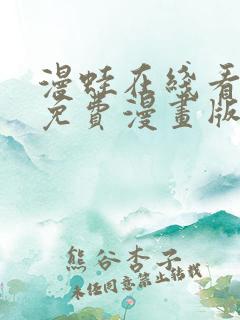 漫蛙在线看
免費漫畫版
熊谷杏子
未经同意禁止转载